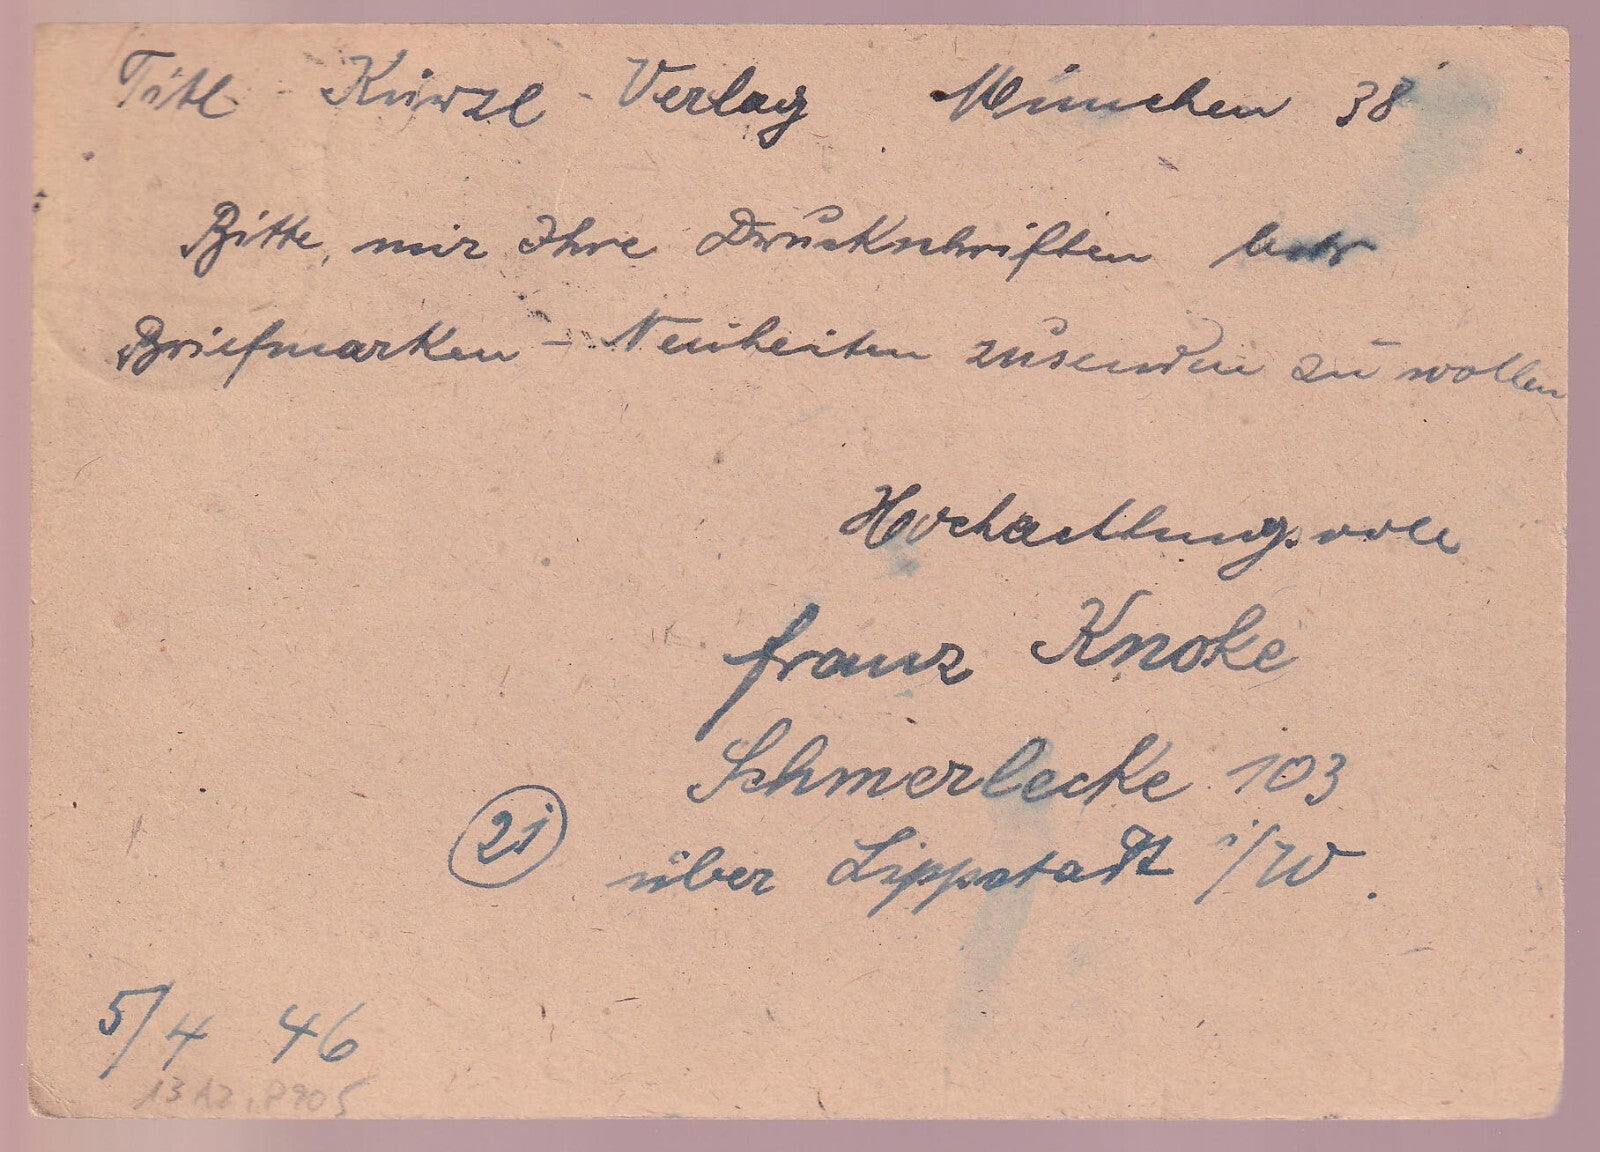 Titl. Kurzl-Verlag München 38
Bitte, mir Ihre Druckschriften betr
Briefmarken-Neuheiten zusenden zu wollen
Hochachtungsvoll
Franz Knoke
Schmerlecke 103
(21) über Lippstadt i/W.
5/4 46